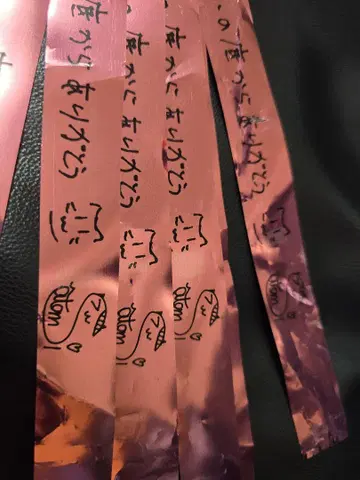 の底からありがとう
atom
底からありがとう
atom
底からありがとう
atom
底からありがとう
atom